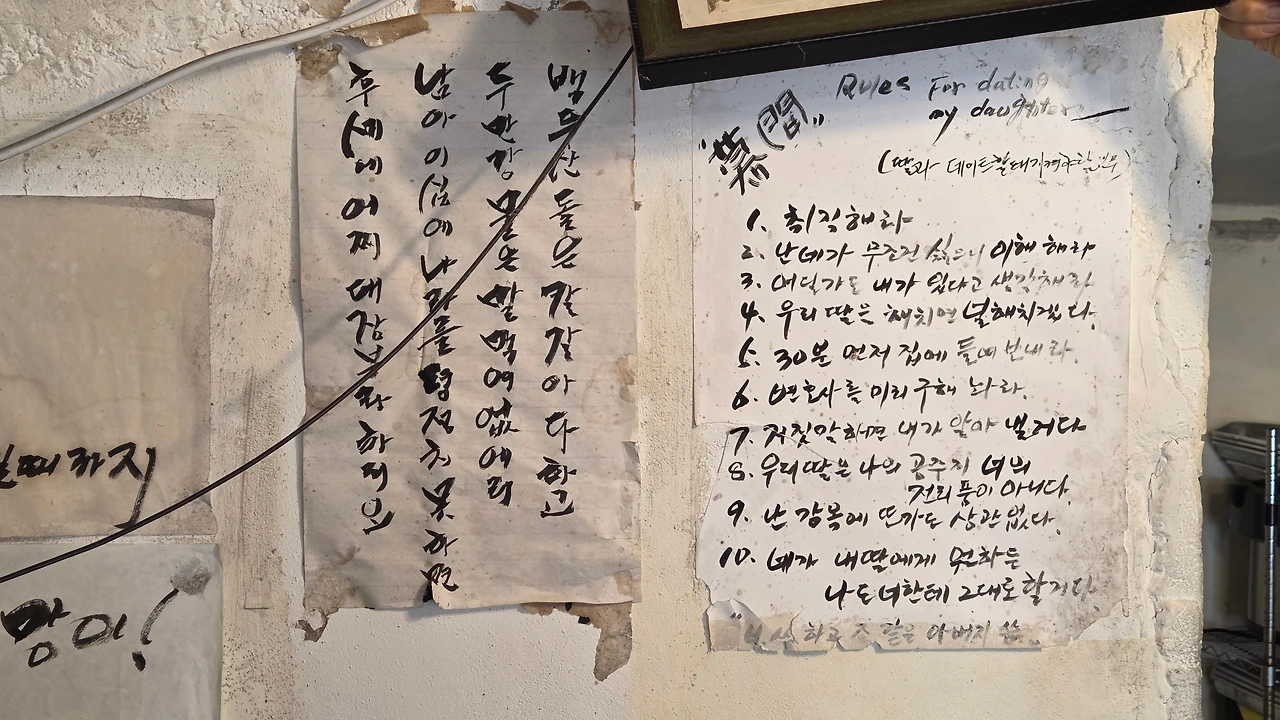 때까지
망이!
백두산돌은칼갈아다하고
두만강물은말먹여없에리
남아이십에나라를평정치못하면
후세에어찌대장부라하리오
Rules For dating
my daughter
(딸과 데이트할때지켜야할
1. 취직해라
2. 난네가 무조건 싫으니 이해해라
3. 어딜가도 내가 있다고 생각해라
4. 우리딸은 해치면 널해치겠다.
5. 30분 먼저 집에 들여보내라.
6. 변호사를 미리 구해 놔라.
7. 거짓말하면 내가 알아 낼거다
8. 우리딸은 나의 공주지 너의
전리품이 아니다.
9. 난 감옥에 또가도 상관없다.
10. 네가 내딸에게 뭔하든
나도너한테 그대로할거다.
아버지